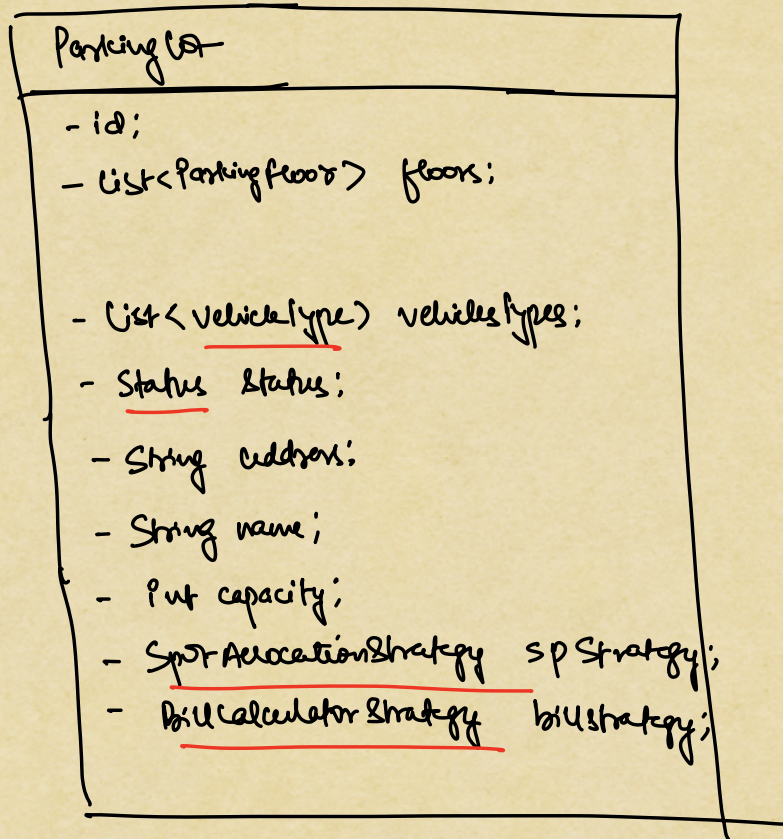 Parking Lot
- id;
- List<ParkingFloor> floors;
- List<VehicleType> vehiclesTypes;
- Status status;
- String address;
- String name;
- int capacity;
- SpotAllocationStrategy spStrategy;
- BillCalculatorStrategy billstrategy;